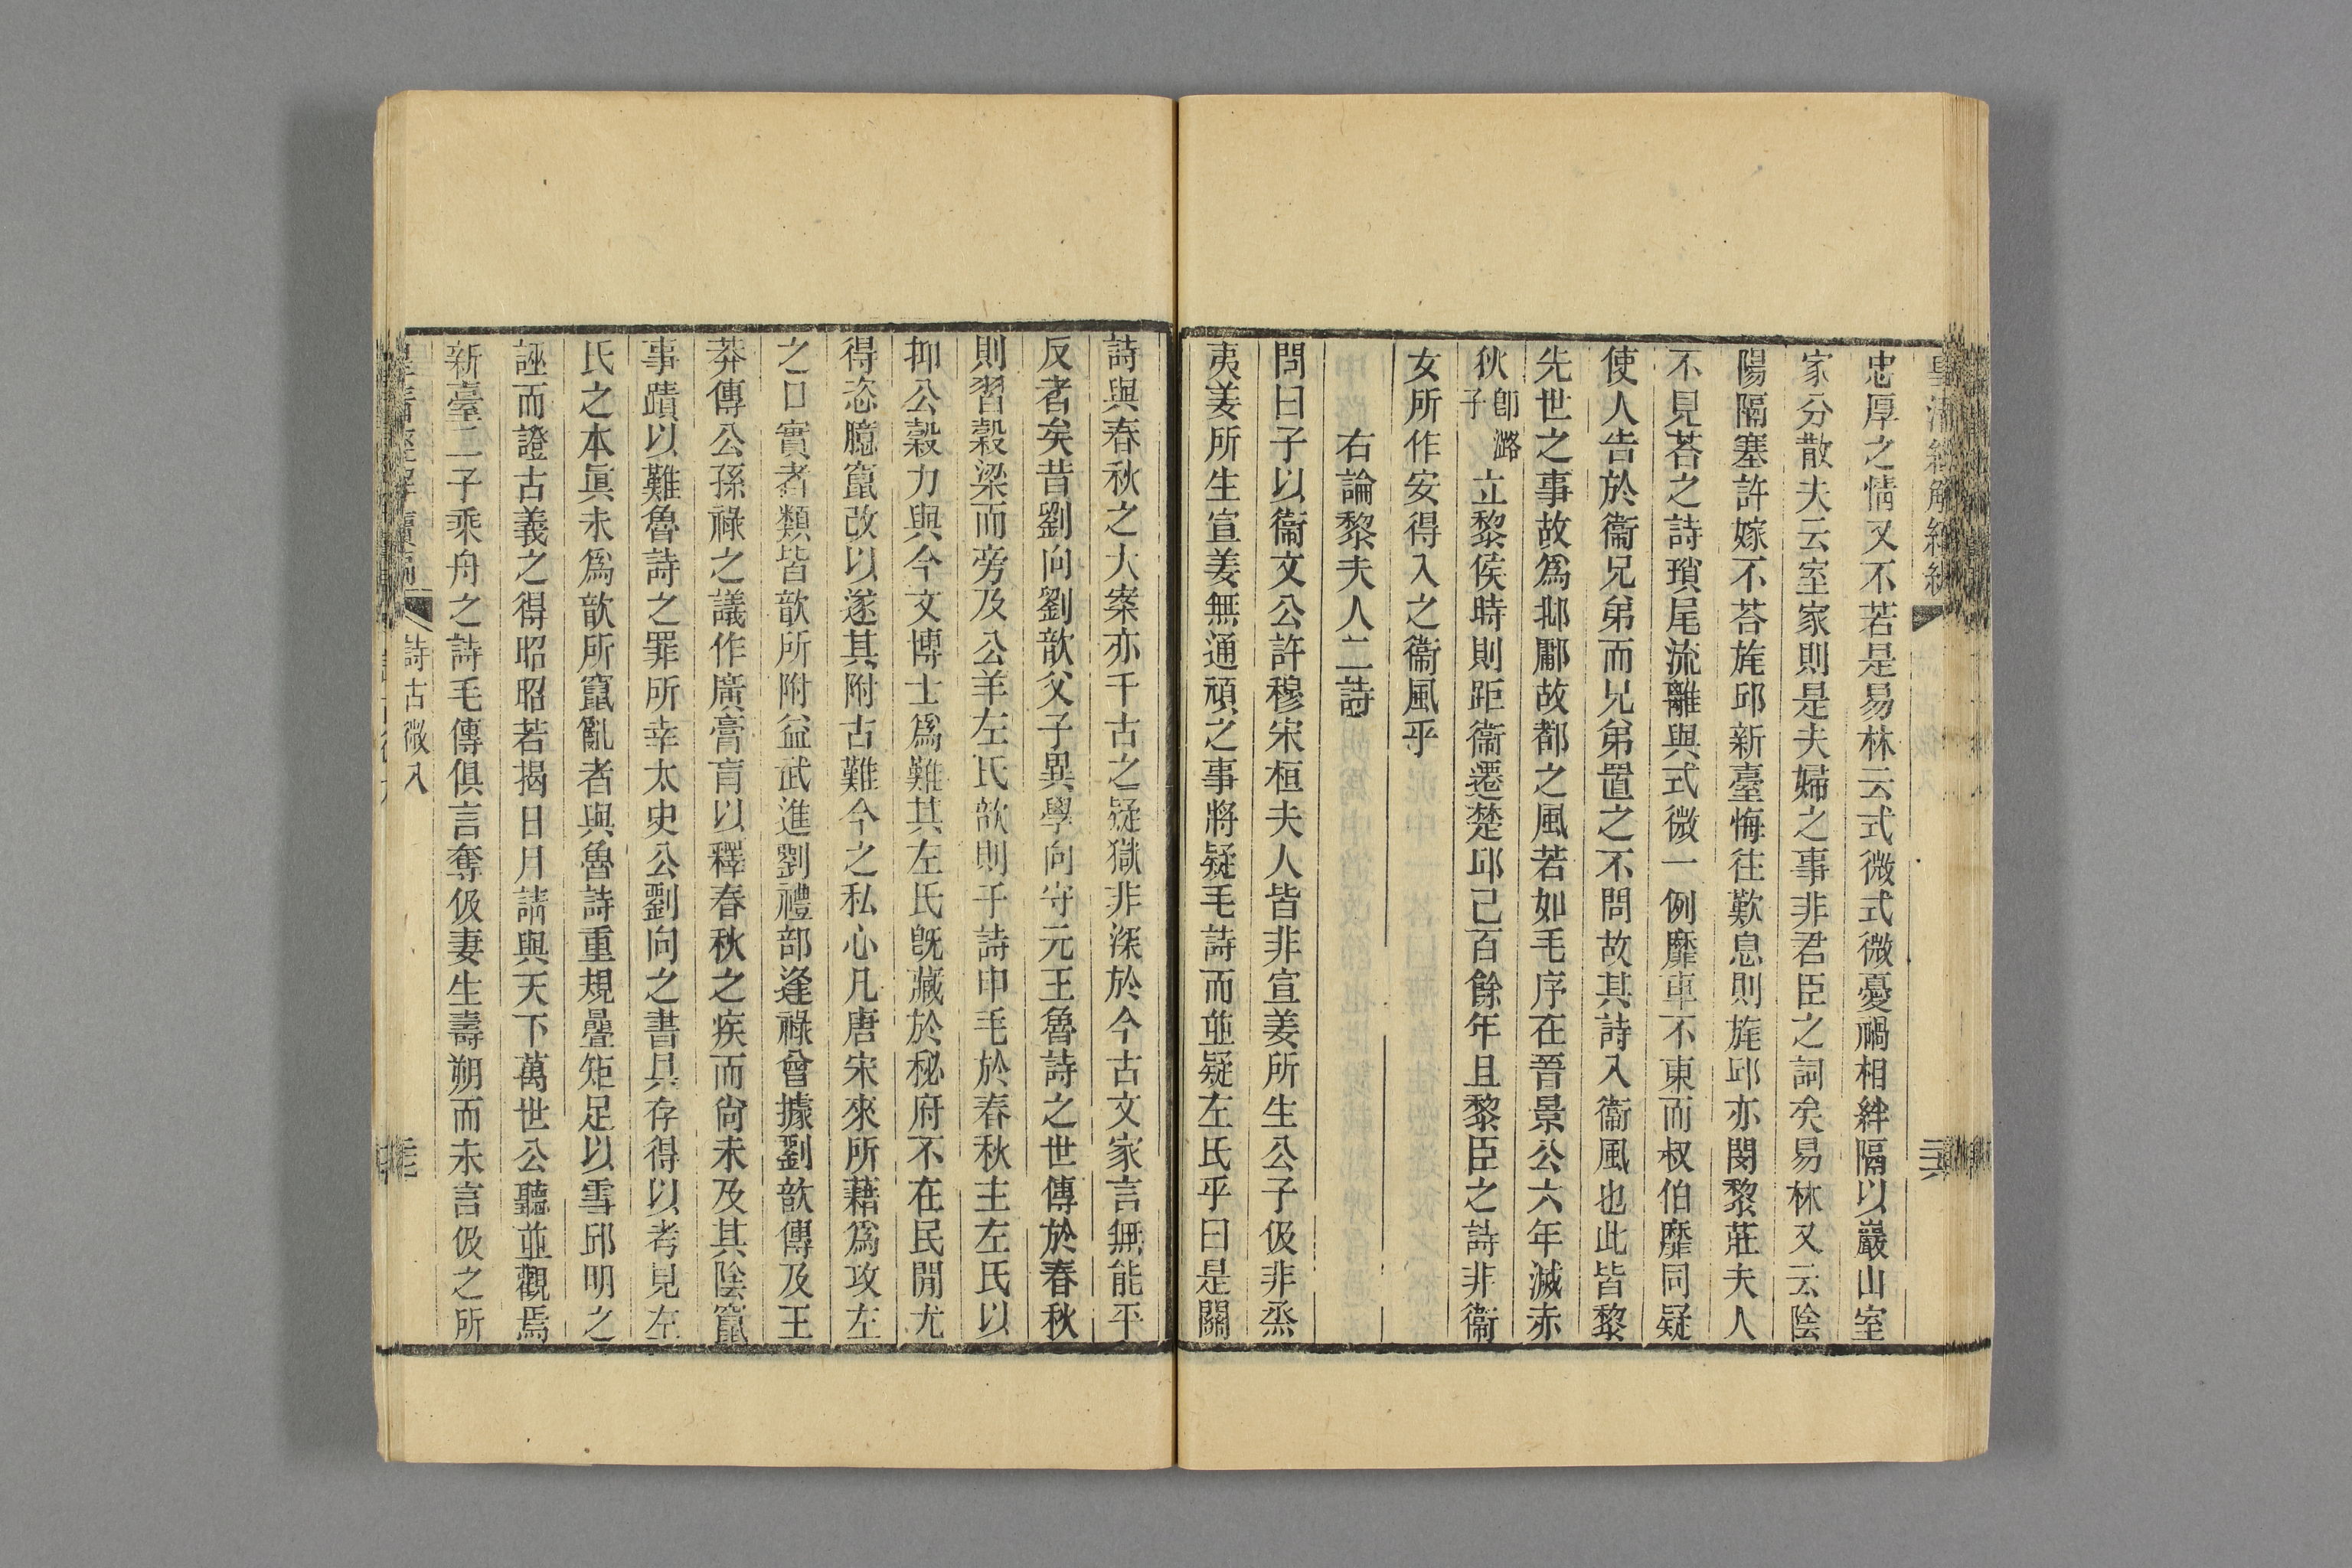 忠厚之情又不若是易林云式微式微憂禍相絆隔以巖山室
家分散夫云室家則是夫婦之事非君臣之詞矣易林又云陰
陽隔塞許嫁不荅旄邱新臺悔往歎息則旄邱亦閔黎莊夫人
不見荅之詩瑣尾流離與式微一例靡車不東而叔伯靡同疑
使人告於衞兄弟而兄弟置之不問故其詩入衞風也此皆黎
先世之事故爲邶鄘故都之風若如毛序在晉景公六年滅赤
狄卽潞子立黎侯時則距衞遷楚邱已百餘年且黎臣之詩非衞
女所作安得入之衞風乎
右論黎夫人二詩
問曰子以衞文公許穆宋桓夫人皆非宣姜所生公子伋非烝
夷姜所生宣姜無通頑之事將疑毛詩而並疑左氏乎曰是關
詩與春秋之大案亦千古之疑獄非深於今古文家言無能平
反者矣昔劉向劉歆父子異學向守元王魯詩之世傳於春秋
則習穀梁而旁及公羊左氏歆則于詩申毛於春秋主左氏以
抑公穀力與今文博士爲難其左氏旣藏於秘府不在民閒尤
得恣臆竄改以遂其附古難今之私心凡唐宋來所藉爲攻左
之口實者類皆歆所附益武進劉禮部逢祿曾據劉歆傳及王
莽傳公孫祿之議作廣膏肓以釋春秋之疾而尙未及其陰竄
事蹟以難魯詩之罪所幸太史公劉向之書具存得以考見左
氏之本眞未爲歆所竄亂者與魯詩重規疊矩足以雪邱明之
誣而證古義之得昭昭若揭日月請與天下萬世公聽並觀焉
新臺二子乘舟之詩毛傳俱言奪伋妻生壽朔而未言伋之所
皇清經解續編
詩古微八